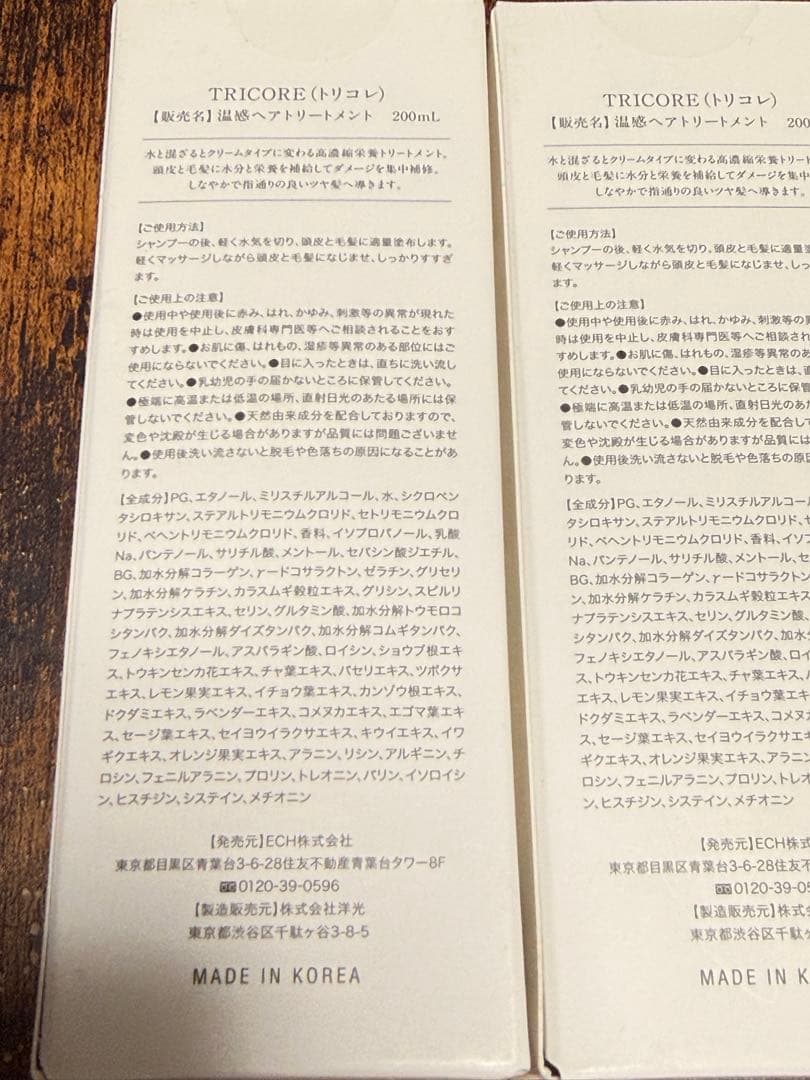 TRICORE(トリコレ)
【販売名】温感ヘアトリートメント 200mL
水と混ざるとクリームタイプに変わる高濃縮栄養トリートメント。
頭皮と毛髪に水分と栄養を補給してダメージを集中補修。
しなやかで指通りの良いツヤ髪へ導きます。
【ご使用方法】
シャンプーの後、軽く水気を切り、頭皮と毛髪に適量塗布します。
軽くマッサージしながら頭皮と毛髪になじませ、しっかりすすぎ
ます。
【ご使用上の注意】
●使用中や使用後に赤み、はれ、かゆみ、刺激等の異常が現れた
時は使用を中止し、皮膚科専門医等へご相談されることをおす
すめします。●お肌に傷、はれもの、湿疹等異常のある部位にはご
使用にならないでください。●目に入ったときは、直ちに洗い流し
てください。●乳幼児の手の届かないところに保管してください。
●極端に高温または低温の場所、直射日光のあたる場所には保
管しないでください。●天然由来成分を配合しておりますので、
変色や沈殿が生じる場合がありますが品質には問題ございませ
ん。●使用後洗い流さないと脱毛や色落ちの原因になることがあ
ります。
【全成分】PG、エタノール、ミリスチルアルコール、水、シクロペン
タシロキサン、ステアルトリモニウムクロリド、セトリモニウムクロ
リド、ベヘントリモニウムクロリド、香料、イソプロパノール、乳酸
Na、パンテノール、サリチル酸、メントール、セバシン酸ジエチル、
BG、加水分解コラーゲン、γードコサラクトン、ゼラチン、グリセリ
ン、加水分解ケラチン、カラスムギ穀粒エキス、グリシン、スピルリ
ナプラテンシスエキス、セリン、グルタミン酸、加水分解トウモロコ
シタンパク、加水分解ダイズタンパク、加水分解コムギタンパク、
フェノキシエタノール、アスパラギン酸、ロイシン、ショウブ根エキ
ス、トウキンセンカ花エキス、チャ葉エキス、パセリエキス、ツボクサ
エキス、レモン果実エキス、イチョウ葉エキス、カンゾウ根エキス、
ドクダミエキス、ラベンダーエキス、コメヌカエキス、エゴマ葉エキ
ス、セージ葉エキス、セイヨウイラクサエキス、キウイエキス、イワ
ギクエキス、オレンジ果実エキス、アラニン、リシン、アルギニン、チ
ロシン、フェニルアラニン、プロリン、トレオニン、バリン、イソロイシ
ン、ヒスチジン、システイン、メチオニン
【発売元】ECH株式会社
東京都目黒区青葉台3-6-28住友不動産青葉台タワー8F
0120-39-0596
【製造販売元】株式会社洋光
東京都渋谷区千駄ヶ谷3-8-5
MADE IN KOREA
TRICORE(トリコレ)
【販売名】温感ヘアトリートメント 200
水と混ざるとクリームタイプに変わる高濃縮栄養トリー
頭皮と毛髪に水分と栄養を補給してダメージを集中
しなやかで指通りの良いツヤ髪へ導きます。
【ご使用方法】
シャンプーの後、軽く水気を切り、頭皮と毛髪に適量
軽くマッサージしながら頭皮と毛髪になじませ、しっ
ます。
【ご使用上の注意】
●使用中や使用後に赤み、はれ、かゆみ、刺激等の
時は使用を中止し、皮膚科専門医等へご相談され
すめします。●お肌に傷、はれもの、湿疹等異常のあ
使用にならないでください。●目に入ったときは、
てください。●乳幼児の手の届かないところに保管
●極端に高温または低温の場所、直射日光のあ
管しないでください。●天然由来成分を配合して
変色や沈殿が生じる場合がありますが品質には
ん。●使用後洗い流さないと脱毛や色落ちの原因
ります。
【全成分】PG、エタノール、ミリスチルアルコー
タシロキサン、ステアルトリモニウムクロリド、セ
リド、ベヘントリモニウムクロリド、香料、イソプ
Na、パンテノール、サリチル酸、メントール、セ
BG、加水分解コラーゲン、γードコサラクトン、
ン、加水分解ケラチン、カラスムギ穀粒エキス、
ナプラテンシスエキス、セリン、グルタミン酸、
シタンパク、加水分解ダイズタンパク、加水
フェノキシエタノール、アスパラギン酸、ロイ
ス、トウキンセンカ花エキス、チャ葉エキス、
エキス、レモン果実エキス、イチョウ葉エキス
ドクダミエキス、ラベンダーエキス、コメヌ
ス、セージ葉エキス、セイヨウイラクサエキ
ギクエキス、オレンジ果実エキス、アラニン、
ロシン、フェニルアラニン、プロリン、トレオ
ン、ヒスチジン、システイン、メチオニン
【発売元】ECH株式
東京都目黒区青葉台3-6-28住友不
0120-39-05
【製造販売元】株式
東京都渋谷区千駄ヶ
MADE IN K